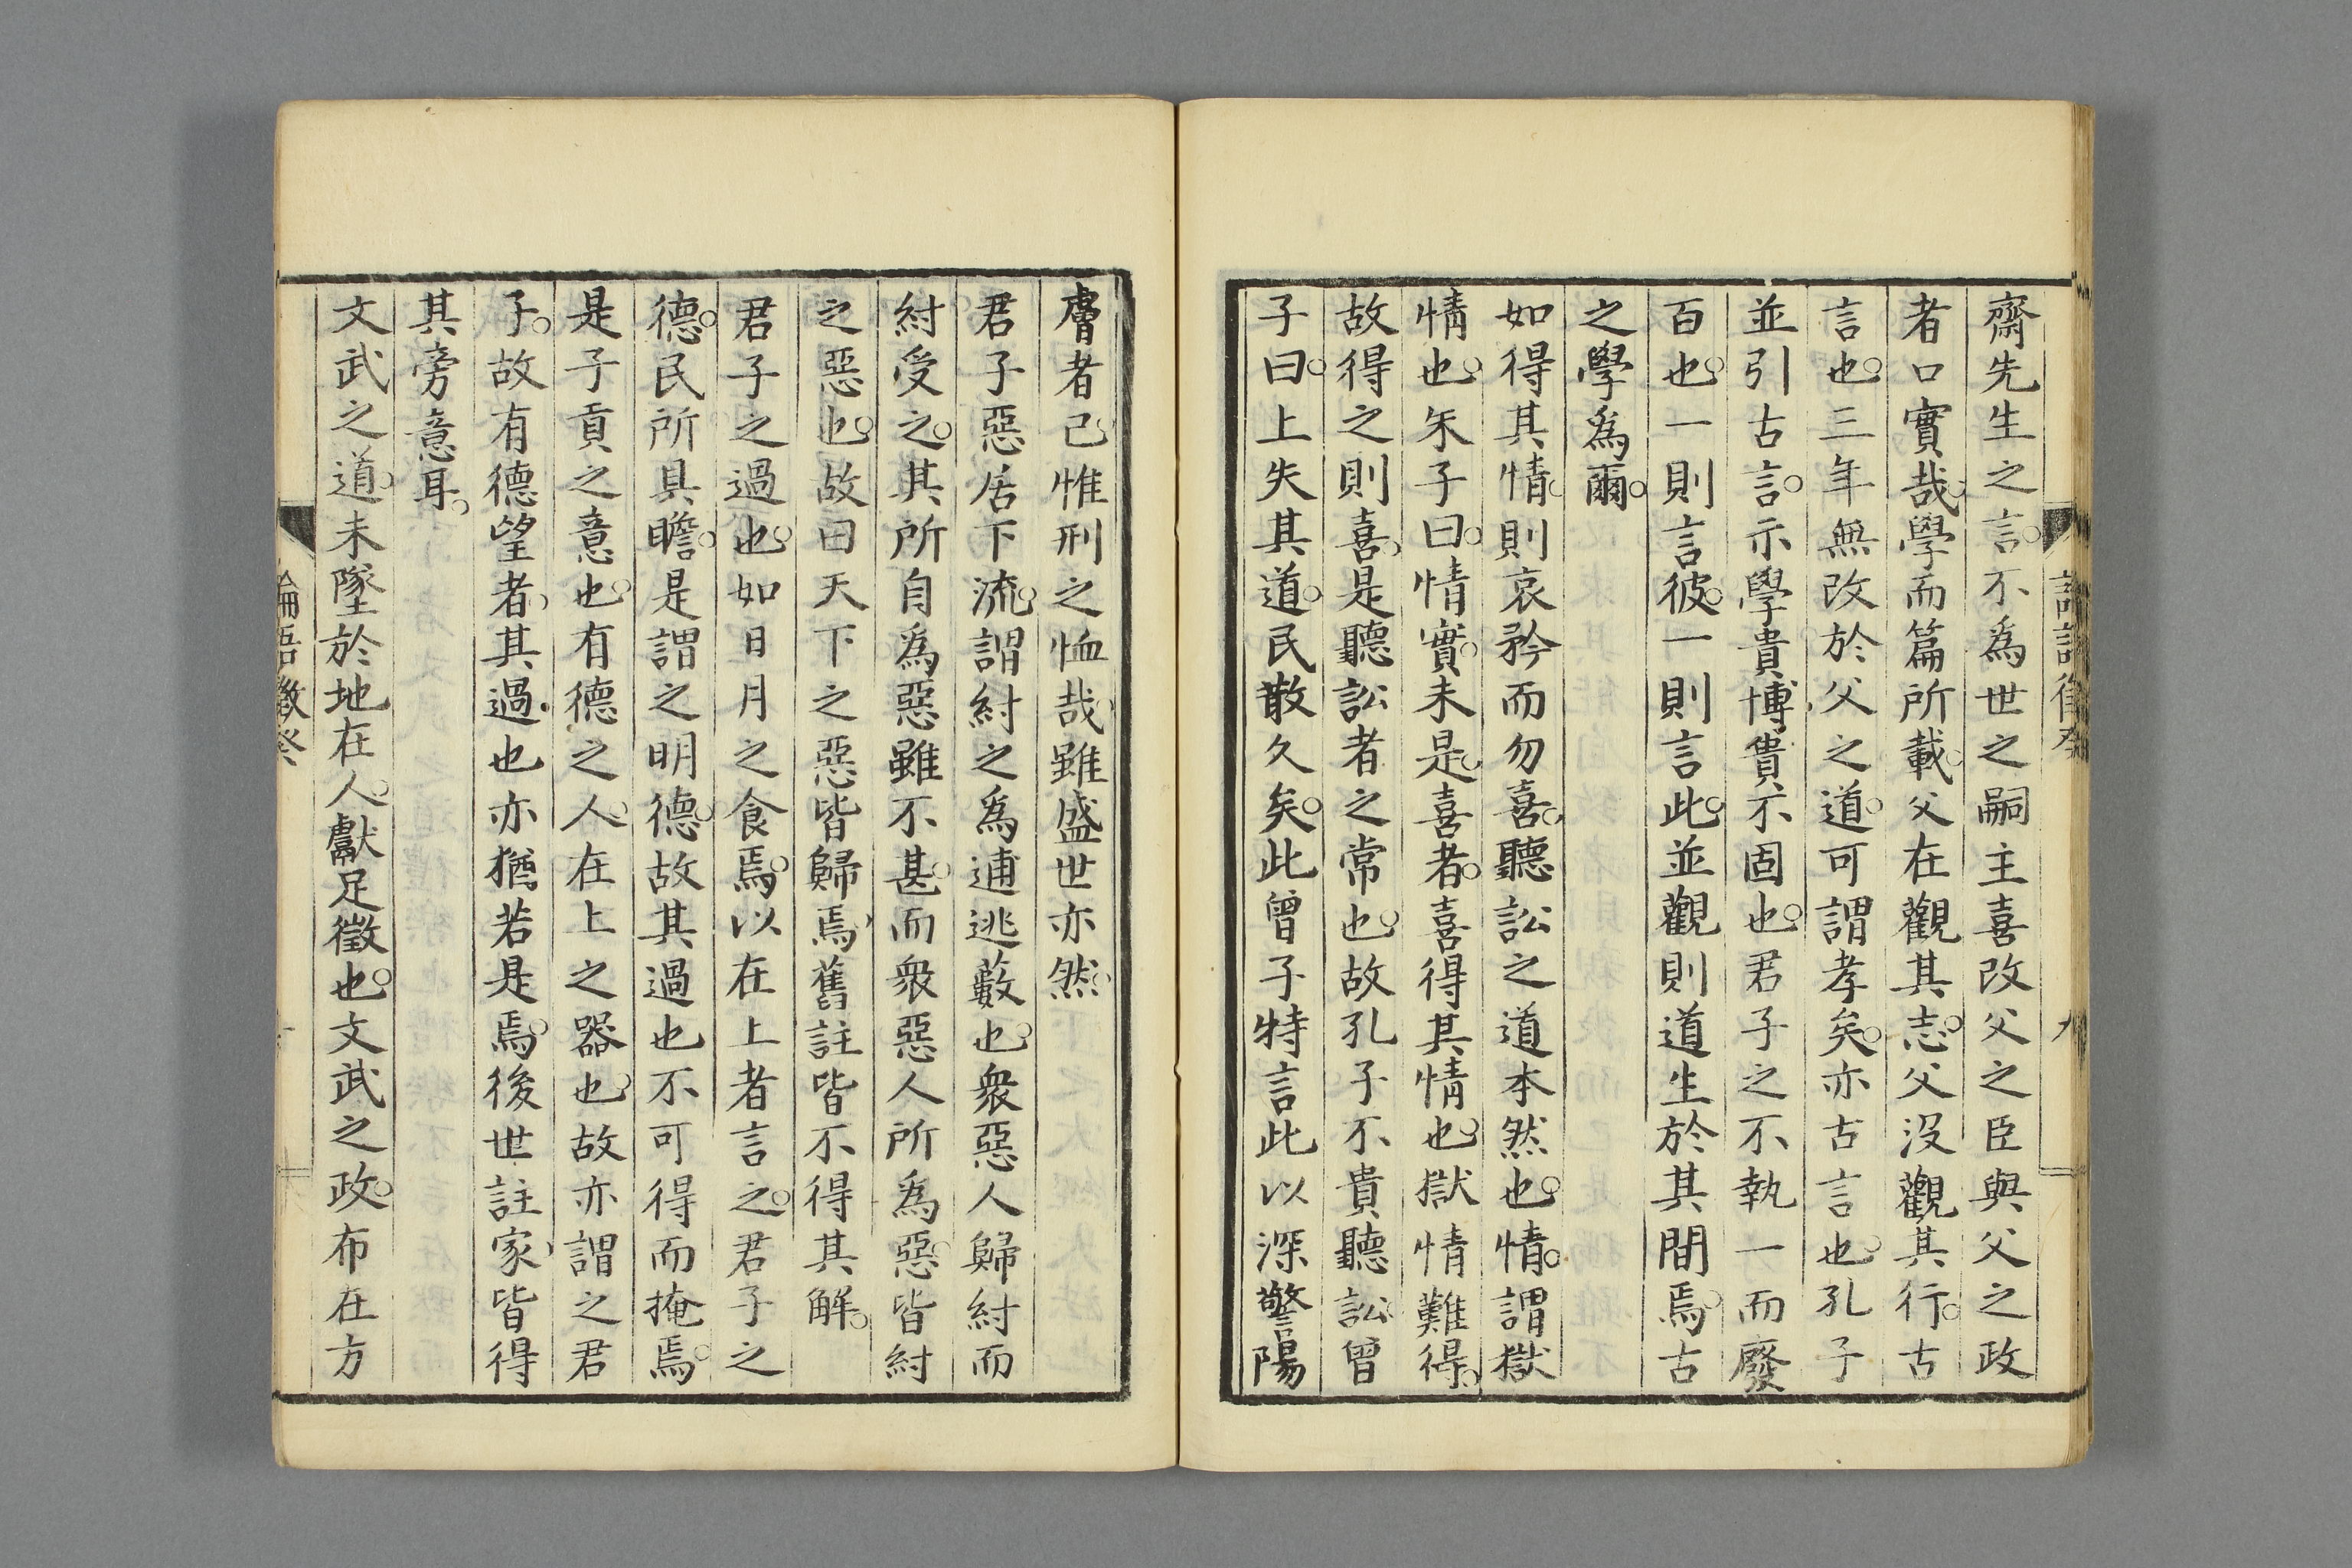 齋先生之言。不爲世之嗣主喜改父之臣與父之政
者口實哉。學而篇所載。父在觀其志。父沒觀其行。古
言也。三年無改於父之道。可謂孝矣。亦古言也。孔子
並引古言。示學貴博貴不固也。君子之不執一而廢
百也。一則言彼。一則言此。並觀則道生於其間焉。古
之學爲爾。
如得其情。則哀矜而勿喜。聽訟之道本然也。情。謂獄
情也。朱子曰。情實。未是。喜者。喜得其情也。獄情難得。
故得之則喜。是聽訟者之常也。故孔子不貴聽訟。曾
子曰。上失其道。民散久矣。此曾子特言此以深警陽
膚者已。惟刑之恤哉。雖盛世亦然。
君子惡居下流。謂紂之爲逋逃藪也。衆惡人歸紂而
紂受之。其所自爲惡雖不甚。而衆惡人所爲惡。皆紂
之惡也。故曰天下之惡皆歸焉。舊註皆不得其解。
君子之過也。如日月之食焉。以在上者言之。君子之
德。民所具瞻。是謂之明德。故其過也不可得而掩焉。
是子貢之意也。有德之人。在上之器也。故亦謂之君
子。故有德望者。其過也亦猶若是焉。後世註家。皆得
其旁意耳。
文武之道。未墜於地在人。獻足徵也。文武之政。布在方
論語徵癸